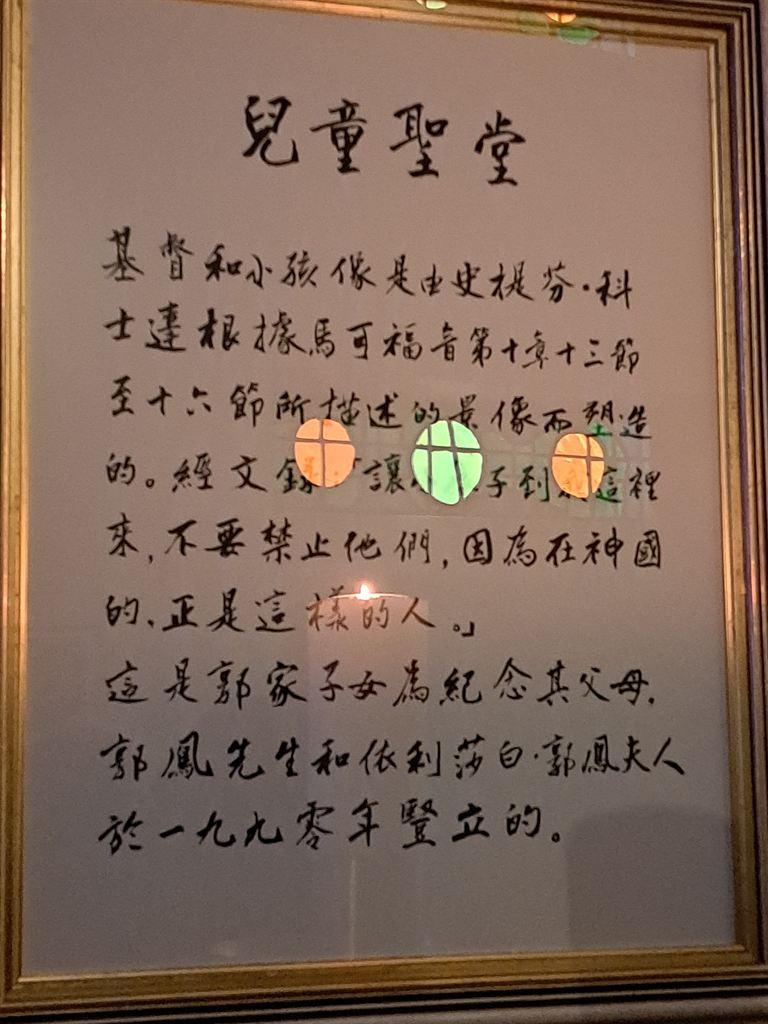 兒童聖堂
基督和小孩像是由史提芬·科
士達根據馬可福音第十章十三節
至十六節所描述的景像而塑造
的。經文錄:「讓小孩子到我這裡
來,不要禁止他們,因為在神國
的、正是這樣的人。」
這是郭家子女為紀念其父母,
郭鳳先生和依利莎白·郭鳳夫人
於一九九零年豎立的。